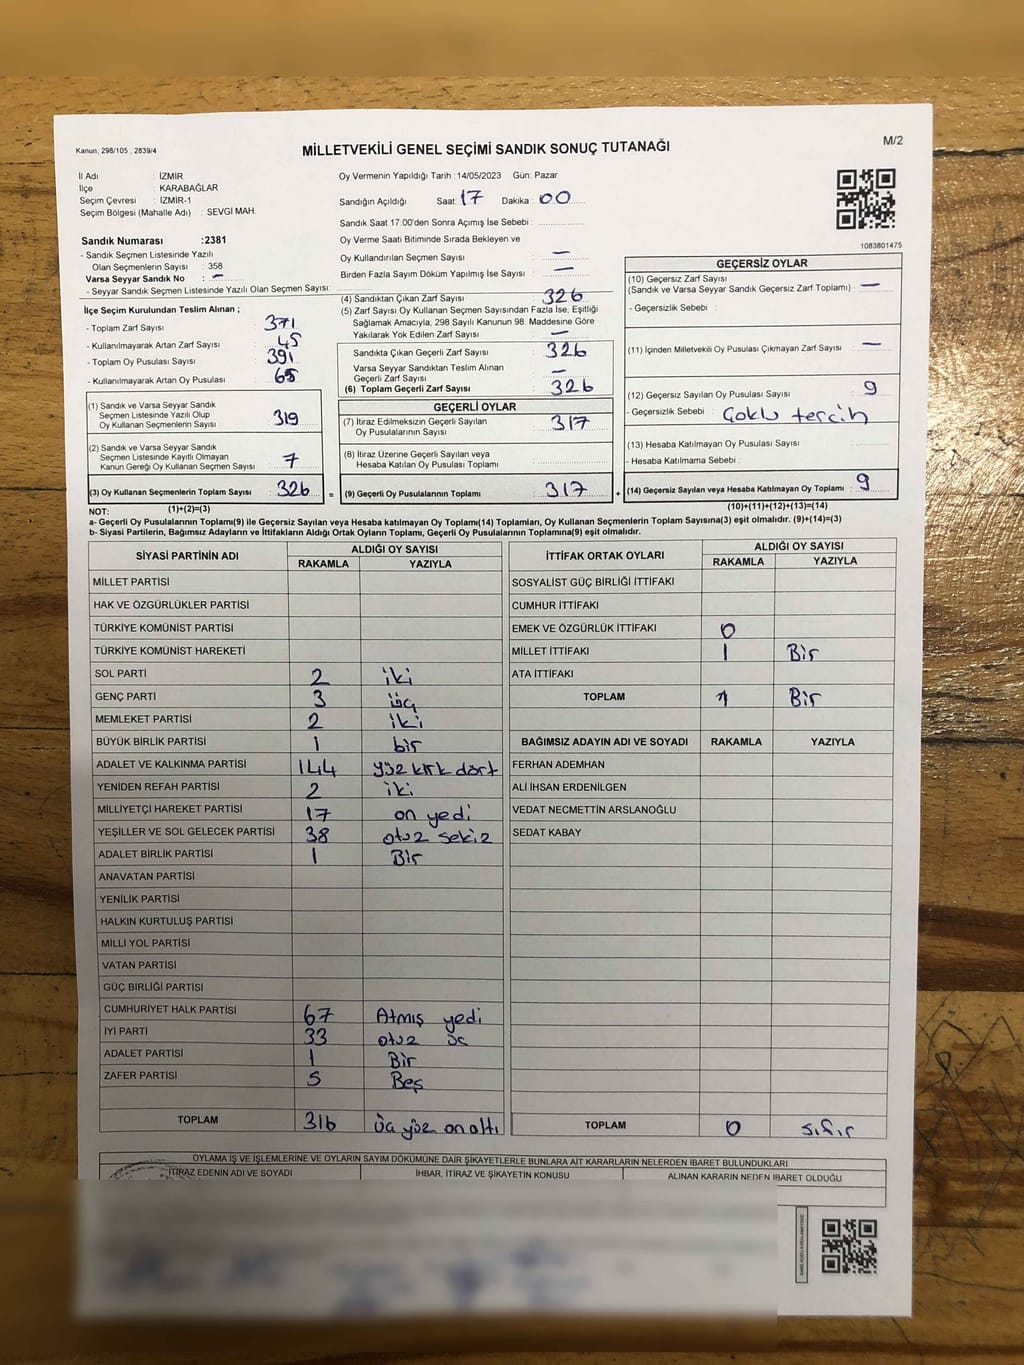 Kanun; 298/105 , 2839/4
MİLLETVEKİLİ GENEL SEÇİMİ SANDIK SONUÇ TUTANAĞI
M/2
İl Adı : İZMİR
İlçe : KARABAĞLAR
Seçim Çevresi : İZMİR-1
Seçim Bölgesi (Mahalle Adı) : SEVGİ MAH.
Oy Vermenin Yapıldığı Tarih :14/05/2023 Gün: Pazar
Sandığın Açıldığı Saat: 17 Dakika : 00
Sandık Saat 17:00'den Sonra Açımış İse Sebebi :
Oy Verme Saati Bitiminde Sırada Bekleyen ve
Oy Kullandırılan Seçmen Sayısı : —
Birden Fazla Sayım Döküm Yapılmış İse Sayısı : —
1083801475
Sandık Numarası :2381
- Sandık Seçmen Listesinde Yazılı
Olan Seçmenlerin Sayısı : 358
Varsa Seyyar Sandık No : —
- Seyyar Sandık Seçmen Listesinde Yazılı Olan Seçmen Sayısı:
İlçe Seçim Kurulundan Teslim Alınan ;
- Toplam Zarf Sayısı : 371
- Kullanılmayarak Artan Zarf Sayısı : 45
- Toplam Oy Pusulası Sayısı : 391
- Kullanılmayarak Artan Oy Pusulası : 65
(1) Sandık ve Varsa Seyyar Sandık
Seçmen Listesinde Yazılı Olup
Oy Kullanan Seçmenlerin Sayısı : 319
(2) Sandık ve Varsa Seyyar Sandık
Seçmen Listesinde Kayıtlı Olmayan
Kanun Gereği Oy Kullanan Seçmen Sayısı : 7
(3) Oy Kullanan Seçmenlerin Toplam Sayısı : 326 =
(4) Sandıktan Çıkan Zarf Sayısı : 326
(5) Zarf Sayısı Oy Kullanan Seçmen Sayısından Fazla İse, Eşitliği
Sağlamak Amacıyla, 298 Sayılı Kanunun 98. Maddesine Göre
Yakılarak Yok Edilen Zarf Sayısı : —
Sandıkta Çıkan Geçerli Zarf Sayısı : 326
Varsa Seyyar Sandıktan Teslim Alınan
Geçerli Zarf Sayısı : —
(6) Toplam Geçerli Zarf Sayısı : 326
GEÇERLİ OYLAR
(7) İtiraz Edilmeksizin Geçerli Sayılan
Oy Pusulalarının Sayısı : 317
(8) İtiraz Üzerine Geçerli Sayılan veya
Hesaba Katılan Oy Pusulası Toplamı :
(9) Geçerli Oy Pusulalarının Toplamı : 317 +
GEÇERSİZ OYLAR
(10) Geçersiz Zarf Sayısı
(Sandık ve Varsa Seyyar Sandık Geçersiz Zarf Toplamı) : —
- Geçersizlik Sebebi :
(11) İçinden Milletvekili Oy Pusulası Çıkmayan Zarf Sayısı : —
(12) Geçersiz Sayılan Oy Pusulası Sayısı : 9
- Geçersizlik Sebebi : Çoklu tercih
(13) Hesaba Katılmayan Oy Pusulası Sayısı :
- Hesaba Katılmama Sebebi :
(14) Geçersiz Sayılan veya Hesaba Katılmayan Oy Toplamı : 9
NOT: (1)+(2)=(3) (10)+(11)+(12)+(13)=(14)
a- Geçerli Oy Pusulalarının Toplamı(9) ile Geçersiz Sayılan veya Hesaba katılmayan Oy Toplamı(14) Toplamları, Oy Kullanan Seçmenlerin Toplam Sayısına(3) eşit olmalıdır. (9)+(14)=(3)
b- Siyasi Partilerin, Bağımsız Adayların ve İttifakların Aldığı Ortak Oyların Toplamı, Geçerli Oy Pusulalarının Toplamına(9) eşit olmalıdır.
SİYASİ PARTİNİN ADI ALDIĞI OY SAYISI
RAKAMLA YAZIYLA
MİLLET PARTİSİ
HAK VE ÖZGÜRLÜKLER PARTİSİ
TÜRKİYE KOMÜNİST PARTİSİ
TÜRKİYE KOMÜNİST HAREKETİ
SOL PARTİ 2 iki
GENÇ PARTİ 3 üç
MEMLEKET PARTİSİ 2 iki
BÜYÜK BİRLİK PARTİSİ 1 bir
ADALET VE KALKINMA PARTİSİ 144 yüz kırk dört
YENİDEN REFAH PARTİSİ 2 iki
MİLLİYETÇİ HAREKET PARTİSİ 17 on yedi
YEŞİLLER VE SOL GELECEK PARTİSİ 38 otuz sekiz
ADALET BİRLİK PARTİSİ 1 Bir
ANAVATAN PARTİSİ
YENİLİK PARTİSİ
HALKIN KURTULUŞ PARTİSİ
MİLLİ YOL PARTİSİ
VATAN PARTİSİ
GÜÇ BİRLİĞİ PARTİSİ
CUMHURİYET HALK PARTİSİ 67 Atmış yedi
İYİ PARTİ 33 otuz üç
ADALET PARTİSİ 1 Bir
ZAFER PARTİSİ 5 Beş
TOPLAM 316 üç yüz on altı
İTTİFAK ORTAK OYLARI ALDIĞI OY SAYISI
RAKAMLA YAZIYLA
SOSYALİST GÜÇ BİRLİĞİ İTTİFAKI
CUMHUR İTTİFAKI
EMEK VE ÖZGÜRLÜK İTTİFAKI 0
MİLLET İTTİFAKI 1 Bir
ATA İTTİFAKI
TOPLAM 1 Bir
BAĞIMSIZ ADAYIN ADI VE SOYADI RAKAMLA YAZIYLA
FERHAN ADEMHAN
ALİ İHSAN ERDENİLGEN
VEDAT NECMETTİN ARSLANOĞLU
SEDAT KABAY
TOPLAM 0 sıfır
OYLAMA İŞ VE İŞLEMLERİNE VE OYLARIN SAYIM DÖKÜMÜNE DAİR ŞİKAYETLERLE BUNLARA AİT KARARLARIN NELERDEN İBARET BULUNDUKLARI
İTİRAZ EDENİN ADI VE SOYADI İHBAR, İTİRAZ VE ŞİKAYETİN KONUSU ALINAN KARARIN NEDEN İBARET OLDUĞU